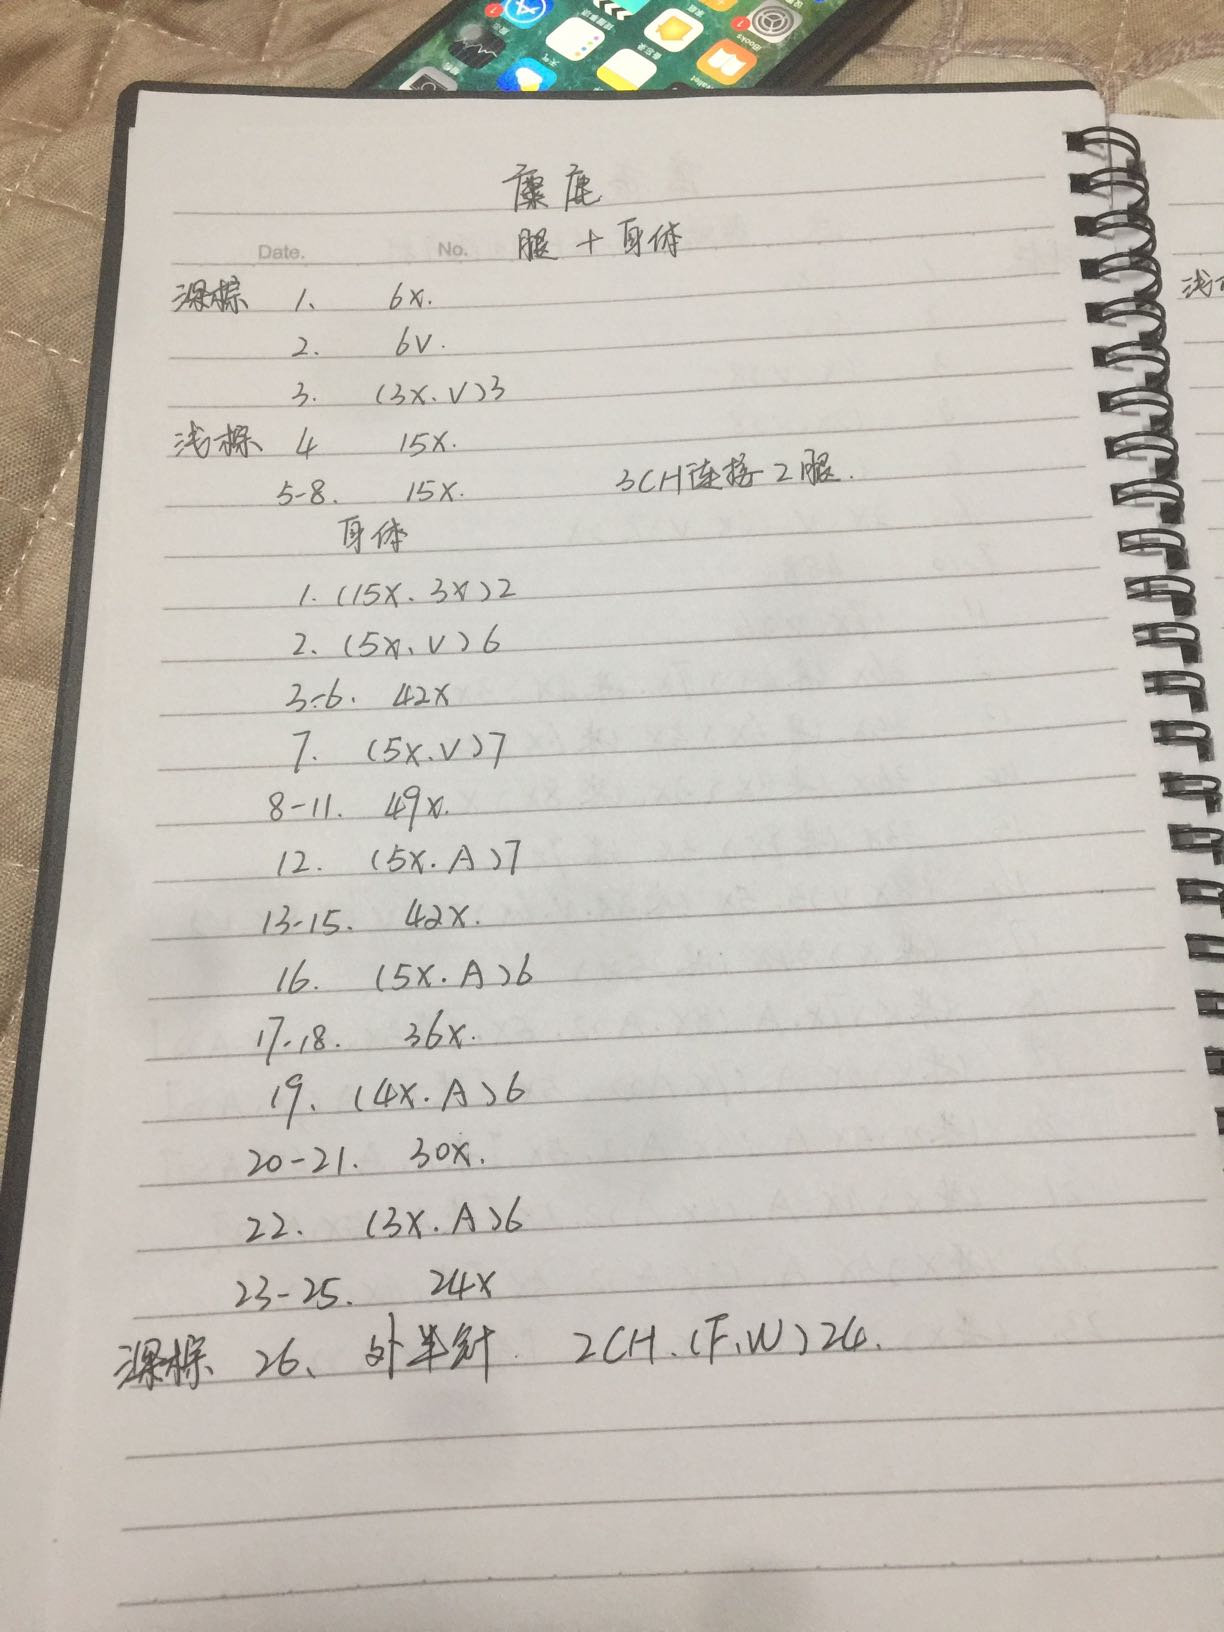 麋鹿
Date. No. 腿 + 身体
深棕 1、 6X.
2. 6V.
3. (3X.V)3
浅棕 4 15X.
5-8. 15X. 3CH连接2腿.
身体
1. (15X. 3X)2
2. (5X, V)6
3-6. 42X
7. (5X.V)7
8-11. 49X.
12. (5X.A)7
13-15. 42X.
16. (5X.A)6
17-18. 36X.
19、 (4X.A)6
20-21. 30X.
22. (3X.A)6
23-25. 24X
深棕 26、 外半针. 2CH.(F,W)24.
浅
iBooks
Wallet